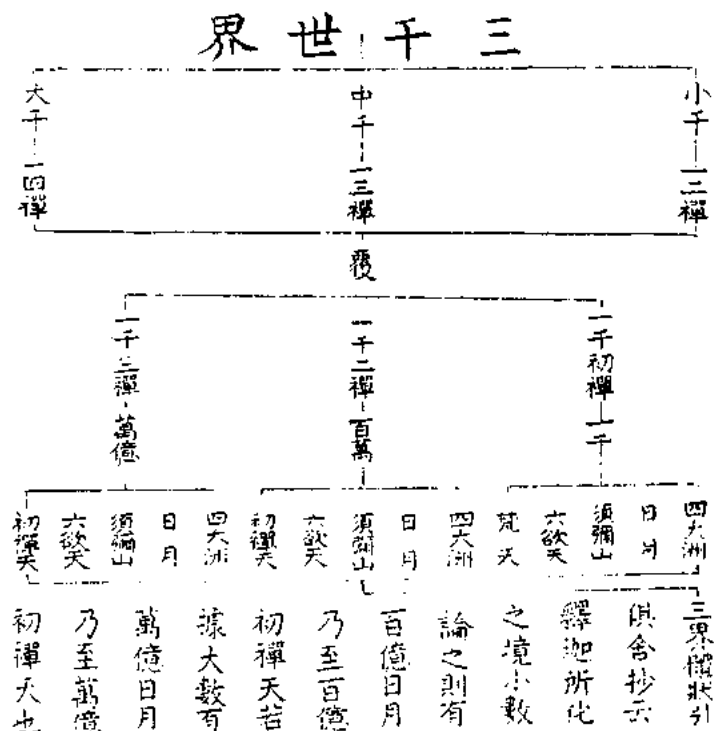 三千世界
小千一二禪
中千一三禪
大千一四禪
覆
一千初禪一千
一千二禪百萬
一千三禪萬億
四大洲
日月
須彌山
六欲天
梵天
四大洲
日月
須彌山
六欲天
初禪天
四大洲
日月
須彌山
六欲天
初禪天
三界
狀引
俱舍抄云
釋迦所化
之境小數
論之則有
百億日月
乃至百億
初禪天若
據大數有
萬億日月
乃至萬億
初禪天也